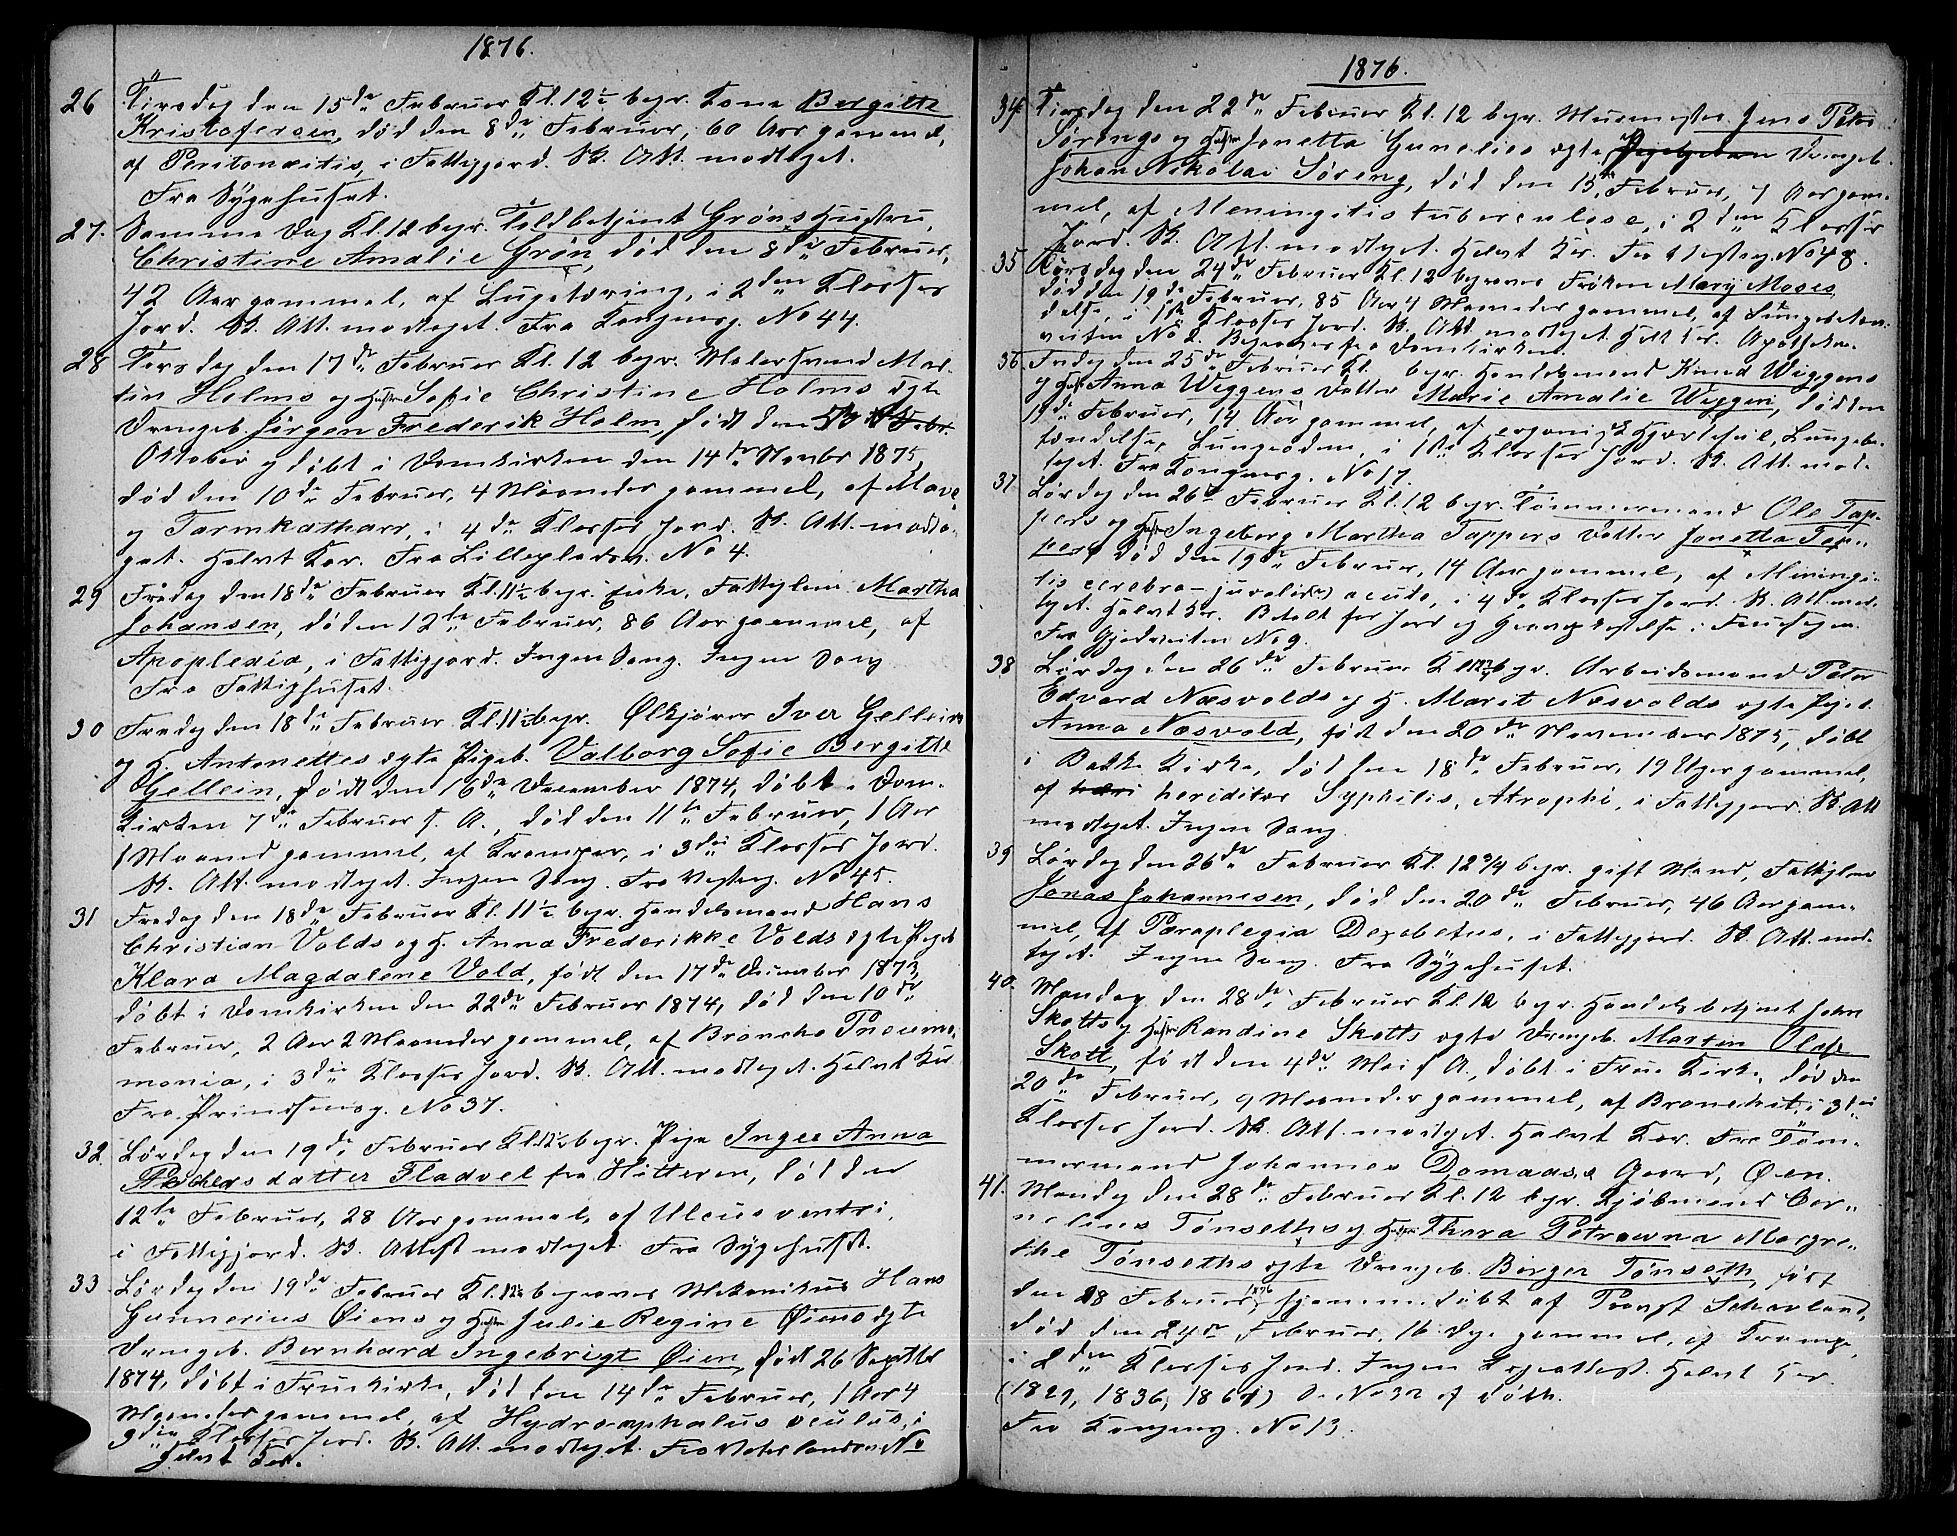 1876.
26 Tirsdag den 15de Februar Kl. 12½ begr. Kone Bergitte
Kristofersen, død den 8de Februar, 60 Aar gammel,
af Peritonæitis, i Fattigjord. Sk. Att. modtaget.
Fra Sygehuset.
27. Samme Dag Kl. 12 begr. Toldbetjent Gröns Hustru,
Christine Amalie Grön, død den 8de Februar,
42 Aar gammel, af Lugetæring, i 2den Klasses
Jord. Sk. Att. modtaget. Fra Kongensg. No 44.
28 Torsdag den 17de Februar Kl. 12 begr. Malersvend Mar-
tin Holms og Hustru Sofie Christine Holms ægte
Drengeb. Jörgen Frederik Holm, født den
Oktober og døbt i Domkirken den 14de Novbr 1875,
død den 10de Februar, 4 Maaneder gammel, af Mave
og Tarmkatharr, i 4de Klasses Jord. Sk. Att. modta-
get. Halvt Kor. Fra Lillegladen. No 4.
29 Fredag den 18de Februar Kl. 11½ begr. Enke, Fattiglem Martha
Johansen, død den 12te Februar, 86 Aar gammel, af
Apoplexia, i Fattigjord. Ingen Sang. Ingen Sang
Fra Fattighuset.
30 Fredag den 18de Februar Kl. 11½ begr. Ølkjører Iver Gellein
og H. Antonettes ægte Pigeb. Valborg Sofie Bergitte
Gellein, født den 16de December 1874, døbt i Dom-
kirken 7de Februar f. A., død den 11te Februar, 1 Aar
1 Maaned gammel, af Kramper, i 3die Klasses Jord.
Sk. Att. modtaget. Ingen Sang. Fra Vesterg. No 45.
31 Fredag den 18de Februar Kl. 11½ begr. Handelsmand Hans
Christian Volds og H. Anna Frederikke Volds ægte Pigeb.
Klara Magdalene Vold, født den 17de December 1873,
døbt i Domkirken den 22de Februar 1874, død den 10de
Februar, 2 Aar 2 Maaneder gammel, af Broncho Pneumo-
monia, i 3die Klasses Jord. Sk. Att. modtaget. Halvt Kor
Fra Prindsensg. No 37.
32. Lørdag den 19de Februar Kl. 11½ begr. Pige Inger Anna
datter Fladvel fra Hitteren, død den
12te Februar, 28 Aar gammel, af Ulcus ventri,
i Fattigjord. Sk. Attest modtaget. Fra Sygehuset.
33 Lørdag den 19de Februar Kl. 12 begraves Mekanikus Hans
Gunnerius Øiens og Hustru Julie Regine Øiens ægte
Drengeb. Bernhard Ingebrigt Øien, født 26 Septbr
1874, døbt i Fruekirke, død den 14de Februar, 1 Aar 4
Maaneder gammel, af Hydrocephalus, i
3die Klasses Jord. Sk. Att. modtaget. Fra No
Halvt Kor.
1876.
34 Tirsdag den 22de Februar Kl. 12 begr. Murmester Jens Peter
Sørengs og Hustru Jonetta Gunelies ægte Drengeb.
Johan Nikolai Søreng, død den 15de Februar, 7 Aar gam-
mel, af Meningitis tuberculose, i 2den Klasses
Jord. Sk. Att. modtaget. Halvt Kor. Fra
35 Torsdag den 24de Februar Kl. 12 begraves Frøken Mary Moses,
død den 19de Februar, 85 Aar 4 Maaneder gammel, af
delse, i 1ste Klasses Jord. Sk. Att. modtaget. Helt Kor. Apotheker-
veiten No 2. Begraves fra Domkirken.
36. Fredag den 25de Februar Kl. begr. Handelsmand Knud Wiggens
og Hustru Anna Wiggens Datter Marie Amalie Wiggen, død den
19de Februar, 14 Aar gammel, af organisk Hjertefeil, Lungebe-
tændelse, Lungeødem, i 1ste Klasses Jord. Sk. Att. mod-
taget. Fra Kongensg. No 17.
37 Lørdag den 26de Februar Kl. 12 begr. Tømmermand Ole Tap-
pers og Hustru Ingeborg Martha Tappers Datter Jonetta Tap-
per, død den 19de Februar, 14 Aar gammel, af Miningi-
tis cerebro- acuta, i 4de Klasses Jord. Sk. Att. mod-
taget. Halvt Kor. Betalt for Jord og i Fruesogn.
Fra Gjedveiten No 9.
38 Lørdag den 26de Februar Kl. 12½ begr. Arbeidsmand Peter
Edvard Næsvolds og H. Marit Næsvolds ægte Pigeb.
Anna Næsvold, født den 20de November 1875, døbt
i Bakke Kirke, død den 18de Februar, 19 Uger gammel,
af heriditær Syphilis, Atrophi, i Fattigjord. Sk. Att
modtaget. Ingen Sang.
39 Lørdag den 26de Februar Kl. 12¾ begr. gift Mand, Fattiglem
Jonas Johannesen, død den 20de Februar, 46 Aar gam-
mel, af Paraplegia Decubetus, i Fattigjord. Sk. Att. mod-
taget. Ingen Sang. Fra Sygehuset.
40. Mandag den 28de Februar Kl. 12 begr. Handelsbetjent John
Skotts og Hustru Randine Skotts ægte Drengeb. Marten Olaf
Skott, født den 4de Mai f. A., døbt i Frue Kirke, død den
20de Februar, 9 Maaneder gammel, af Bronchit, i 3die
Klasses Jord. Sk. Att. modtaget. Halvt Kor. Fra Tøm-
mermand Johannes Domaases Gaard, Øen.
41. Mandag den 28de Februar Kl. 12 begr. Kjøbmand Cor-
nelius Tönseths og Hustru Thora Petrowna Margre-
the Tönseths ægte Drengeb. Birger Tönseth, født
den 8 Februar 1876 hjemmedøbt af Provst Schavland,
død den 24de Februar, 16 Dage gammel, af Krampe,
i 2den Klasses Jord. Ingen Lægeattest. Halvt Kor.
(1829, 1836, 1864) No 32 af døbte.
Fra Kongensg. No 13.